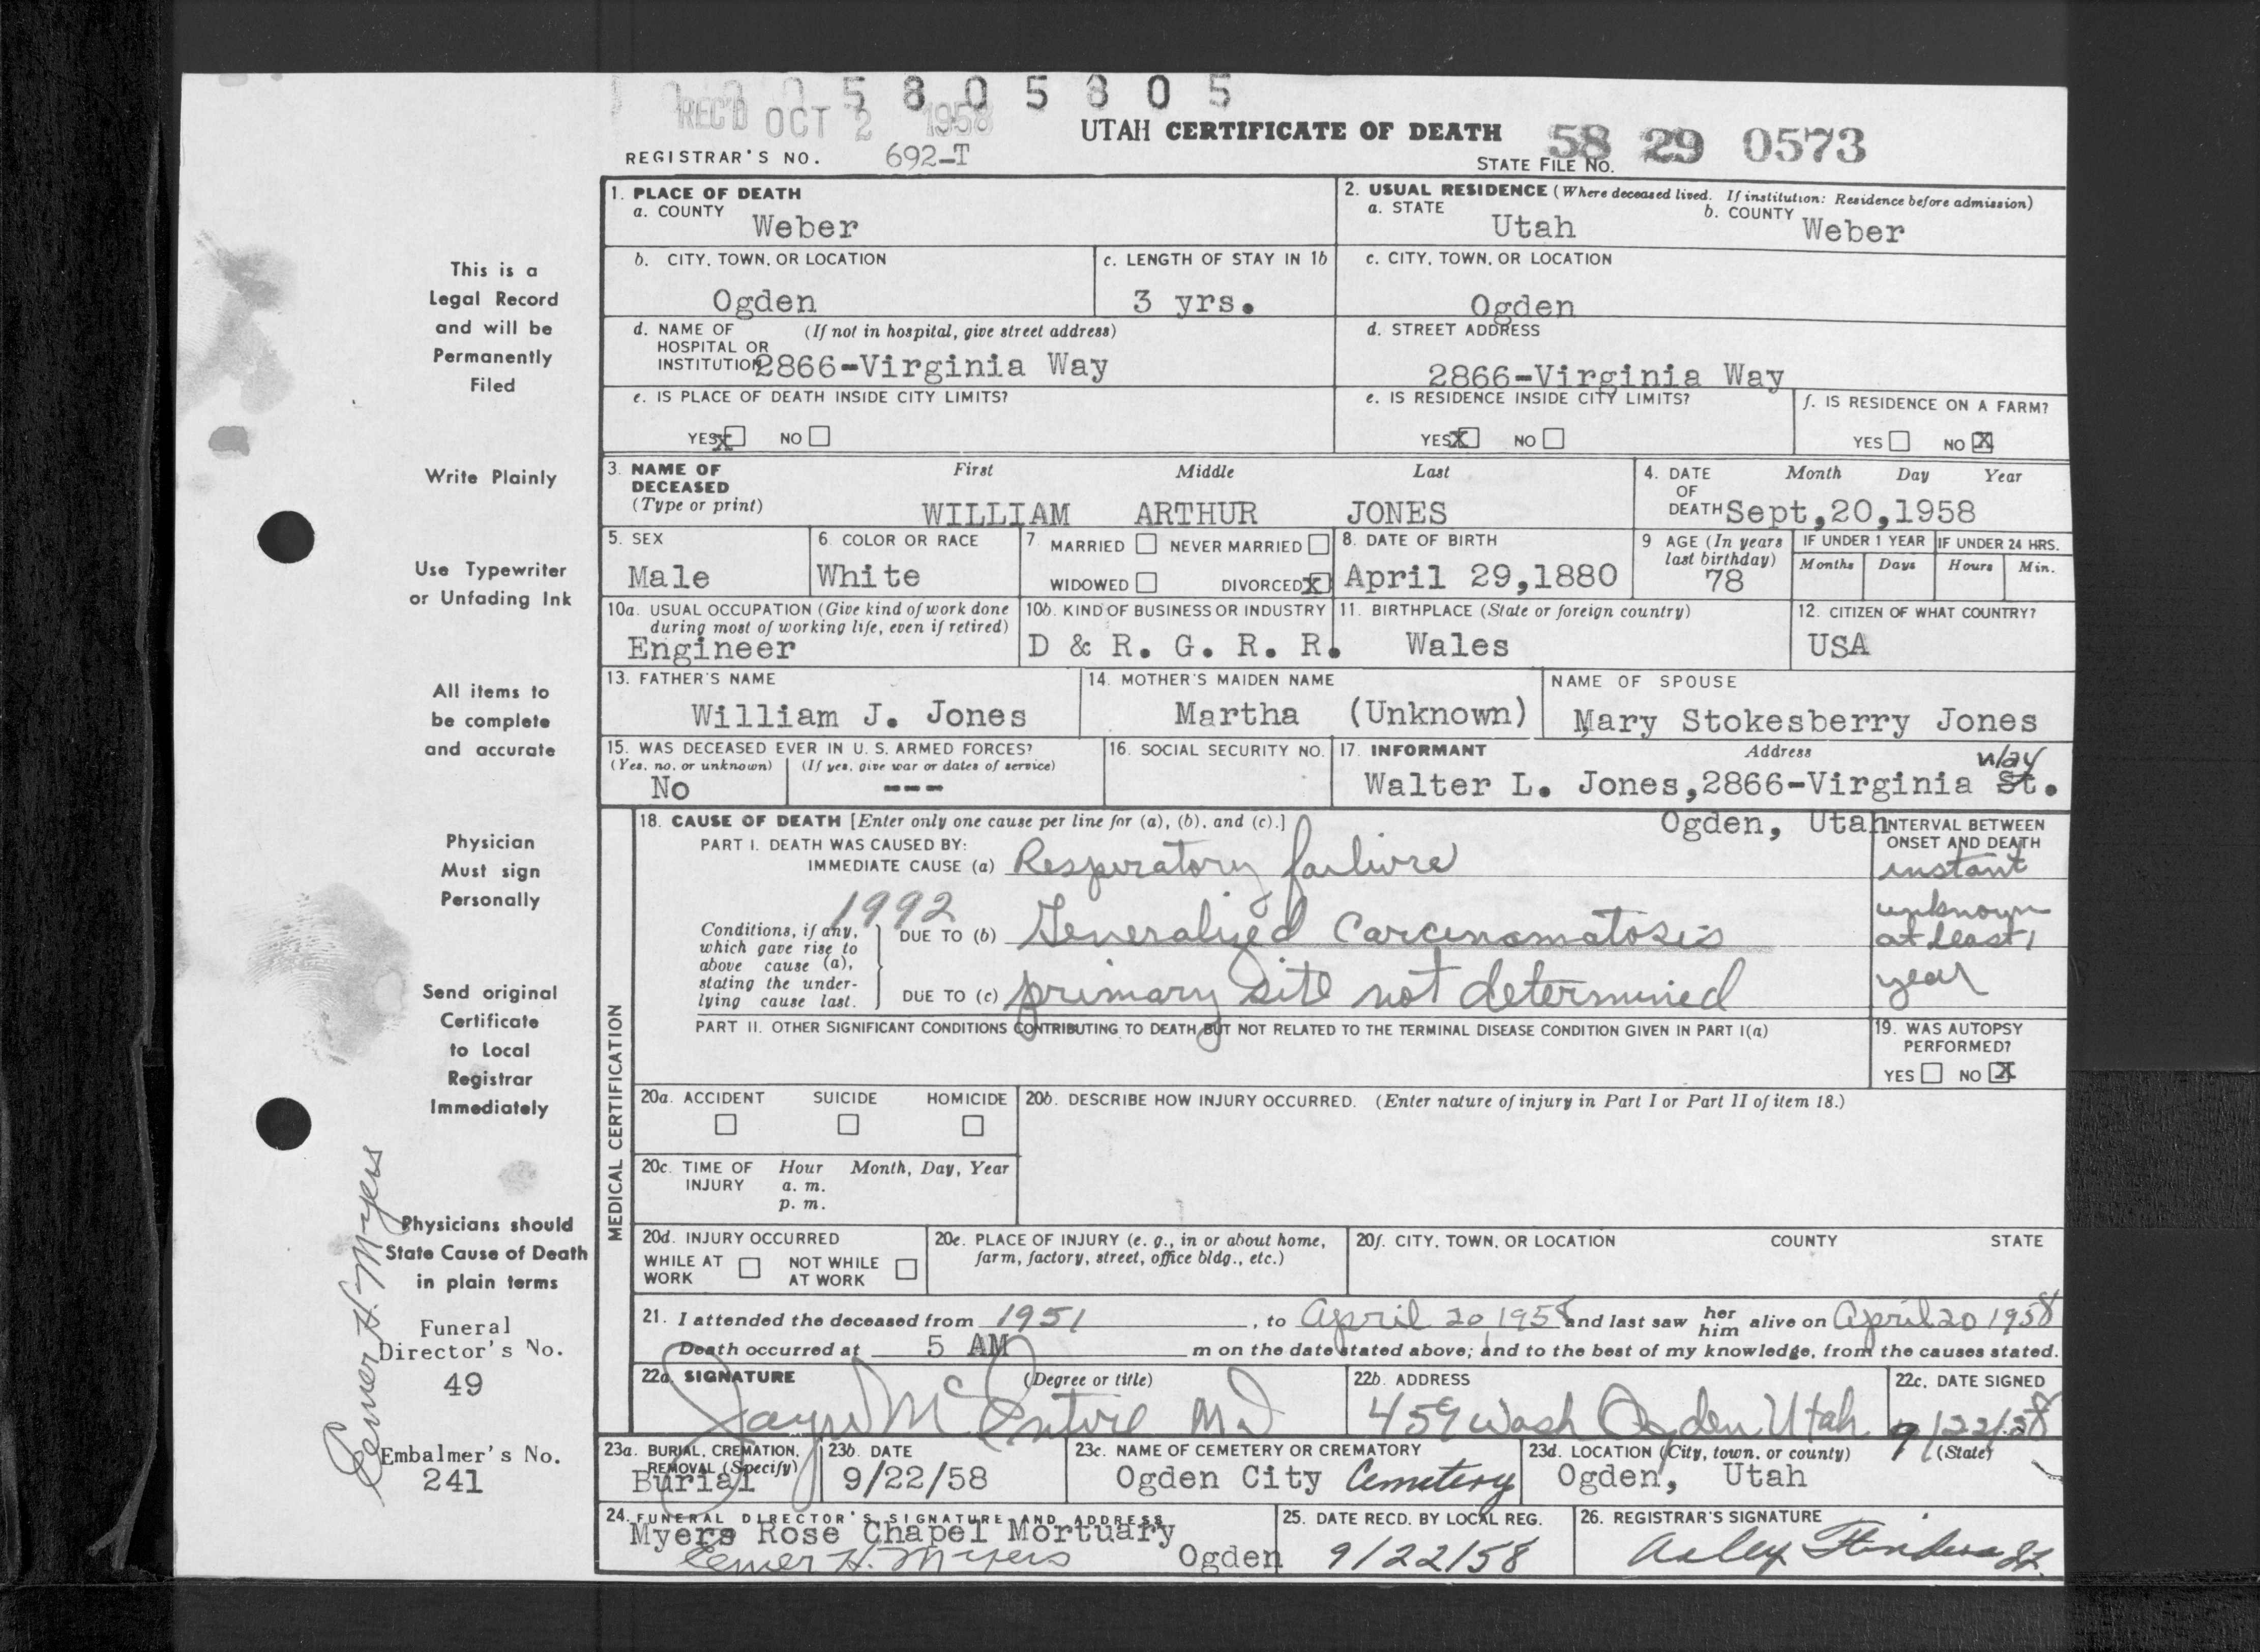 5 8 0 5 8 0 5
REC'D OCT 2 1958
UTAH CERTIFICATE OF DEATH
58 29 0573
REGISTRAR'S NO. 692-T
STATE FILE NO.
1. PLACE OF DEATH
a. COUNTY Weber
2. USUAL RESIDENCE (Where deceased lived. If institution: Residence before admission)
a. STATE Utah b. COUNTY Weber
b. CITY, TOWN, OR LOCATION Ogden
c. LENGTH OF STAY IN 1b 3 yrs.
c. CITY, TOWN, OR LOCATION Ogden
d. NAME OF HOSPITAL OR INSTITUTION (If not in hospital, give street address) 2866-Virginia Way
d. STREET ADDRESS 2866-Virginia Way
e. IS PLACE OF DEATH INSIDE CITY LIMITS?
YES X NO
e. IS RESIDENCE INSIDE CITY LIMITS?
YES X NO
f. IS RESIDENCE ON A FARM?
YES NO X
3. NAME OF DECEASED (Type or print)
First Middle Last
WILLIAM ARTHUR JONES
4. DATE OF DEATH Month Day Year
Sept,20,1958
5. SEX Male
6. COLOR OR RACE White
7 MARRIED NEVER MARRIED
WIDOWED DIVORCED X
8. DATE OF BIRTH April 29,1880
9 AGE (In years last birthday) 78
IF UNDER 1 YEAR Months Days
IF UNDER 24 HRS. Hours Min.
10a. USUAL OCCUPATION (Give kind of work done during most of working life, even if retired)
Engineer
10b. KIND OF BUSINESS OR INDUSTRY
D & R. G. R. R.
11. BIRTHPLACE (State or foreign country)
Wales
12. CITIZEN OF WHAT COUNTRY?
USA
13. FATHER'S NAME
William J. Jones
14. MOTHER'S MAIDEN NAME
Martha (Unknown)
NAME OF SPOUSE
Mary Stokesberry Jones
15. WAS DECEASED EVER IN U. S. ARMED FORCES?
(Yes, no, or unknown) (If yes, give war or dates of service)
No ---
16. SOCIAL SECURITY NO.
17. INFORMANT Address
Way
Walter L. Jones,2866-Virginia St.
Ogden, Utah
18. CAUSE OF DEATH [Enter only one cause per line for (a), (b), and (c).]
INTERVAL BETWEEN ONSET AND DEATH
PART I. DEATH WAS CAUSED BY:
IMMEDIATE CAUSE (a) Respiratory failure
instant
1992
Conditions, if any, which gave rise to above cause (a), stating the underlying cause last.
DUE TO (b) Generalized Carcinomatosis
unknown
at least 1
DUE TO (c) primary site not determined
year
PART II. OTHER SIGNIFICANT CONDITIONS CONTRIBUTING TO DEATH BUT NOT RELATED TO THE TERMINAL DISEASE CONDITION GIVEN IN PART I(a)
19. WAS AUTOPSY PERFORMED?
YES NO X
MEDICAL CERTIFICATION
20a. ACCIDENT SUICIDE HOMICIDE
20b. DESCRIBE HOW INJURY OCCURRED. (Enter nature of injury in Part I or Part II of item 18.)
20c. TIME OF INJURY Hour Month, Day, Year
a. m.
p. m.
20d. INJURY OCCURRED
WHILE AT WORK NOT WHILE AT WORK
20e. PLACE OF INJURY (e. g., in or about home, farm, factory, street, office bldg., etc.)
20f. CITY, TOWN, OR LOCATION COUNTY STATE
21. I attended the deceased from 1951, to April 20 1958 and last saw her him alive on April 20 1958
Death occurred at 5 AM m on the date stated above; and to the best of my knowledge, from the causes stated.
22a. SIGNATURE (Degree or title)
McEntire MD
22b. ADDRESS
459 Wash Ogden Utah
22c. DATE SIGNED
9/22/58
23a. BURIAL, CREMATION, REMOVAL (Specify)
Burial
23b. DATE
9/22/58
23c. NAME OF CEMETERY OR CREMATORY
Ogden City Cemetery
23d. LOCATION (City, town, or county) (State)
Ogden, Utah
24. FUNERAL DIRECTOR'S SIGNATURE AND ADDRESS
Myers Rose Chapel Mortuary
Elmer H. Myers Ogden
25. DATE RECD. BY LOCAL REG.
9/22/58
26. REGISTRAR'S SIGNATURE
This is a
Legal Record
and will be
Permanently
Filed
Write Plainly
Use Typewriter
or Unfading Ink
All items to
be complete
and accurate
Physician
Must sign
Personally
Send original
Certificate
to Local
Registrar
Immediately
Physicians should
State Cause of Death
in plain terms
Funeral
Director's No.
49
Embalmer's No.
241
Elmer H. Myers